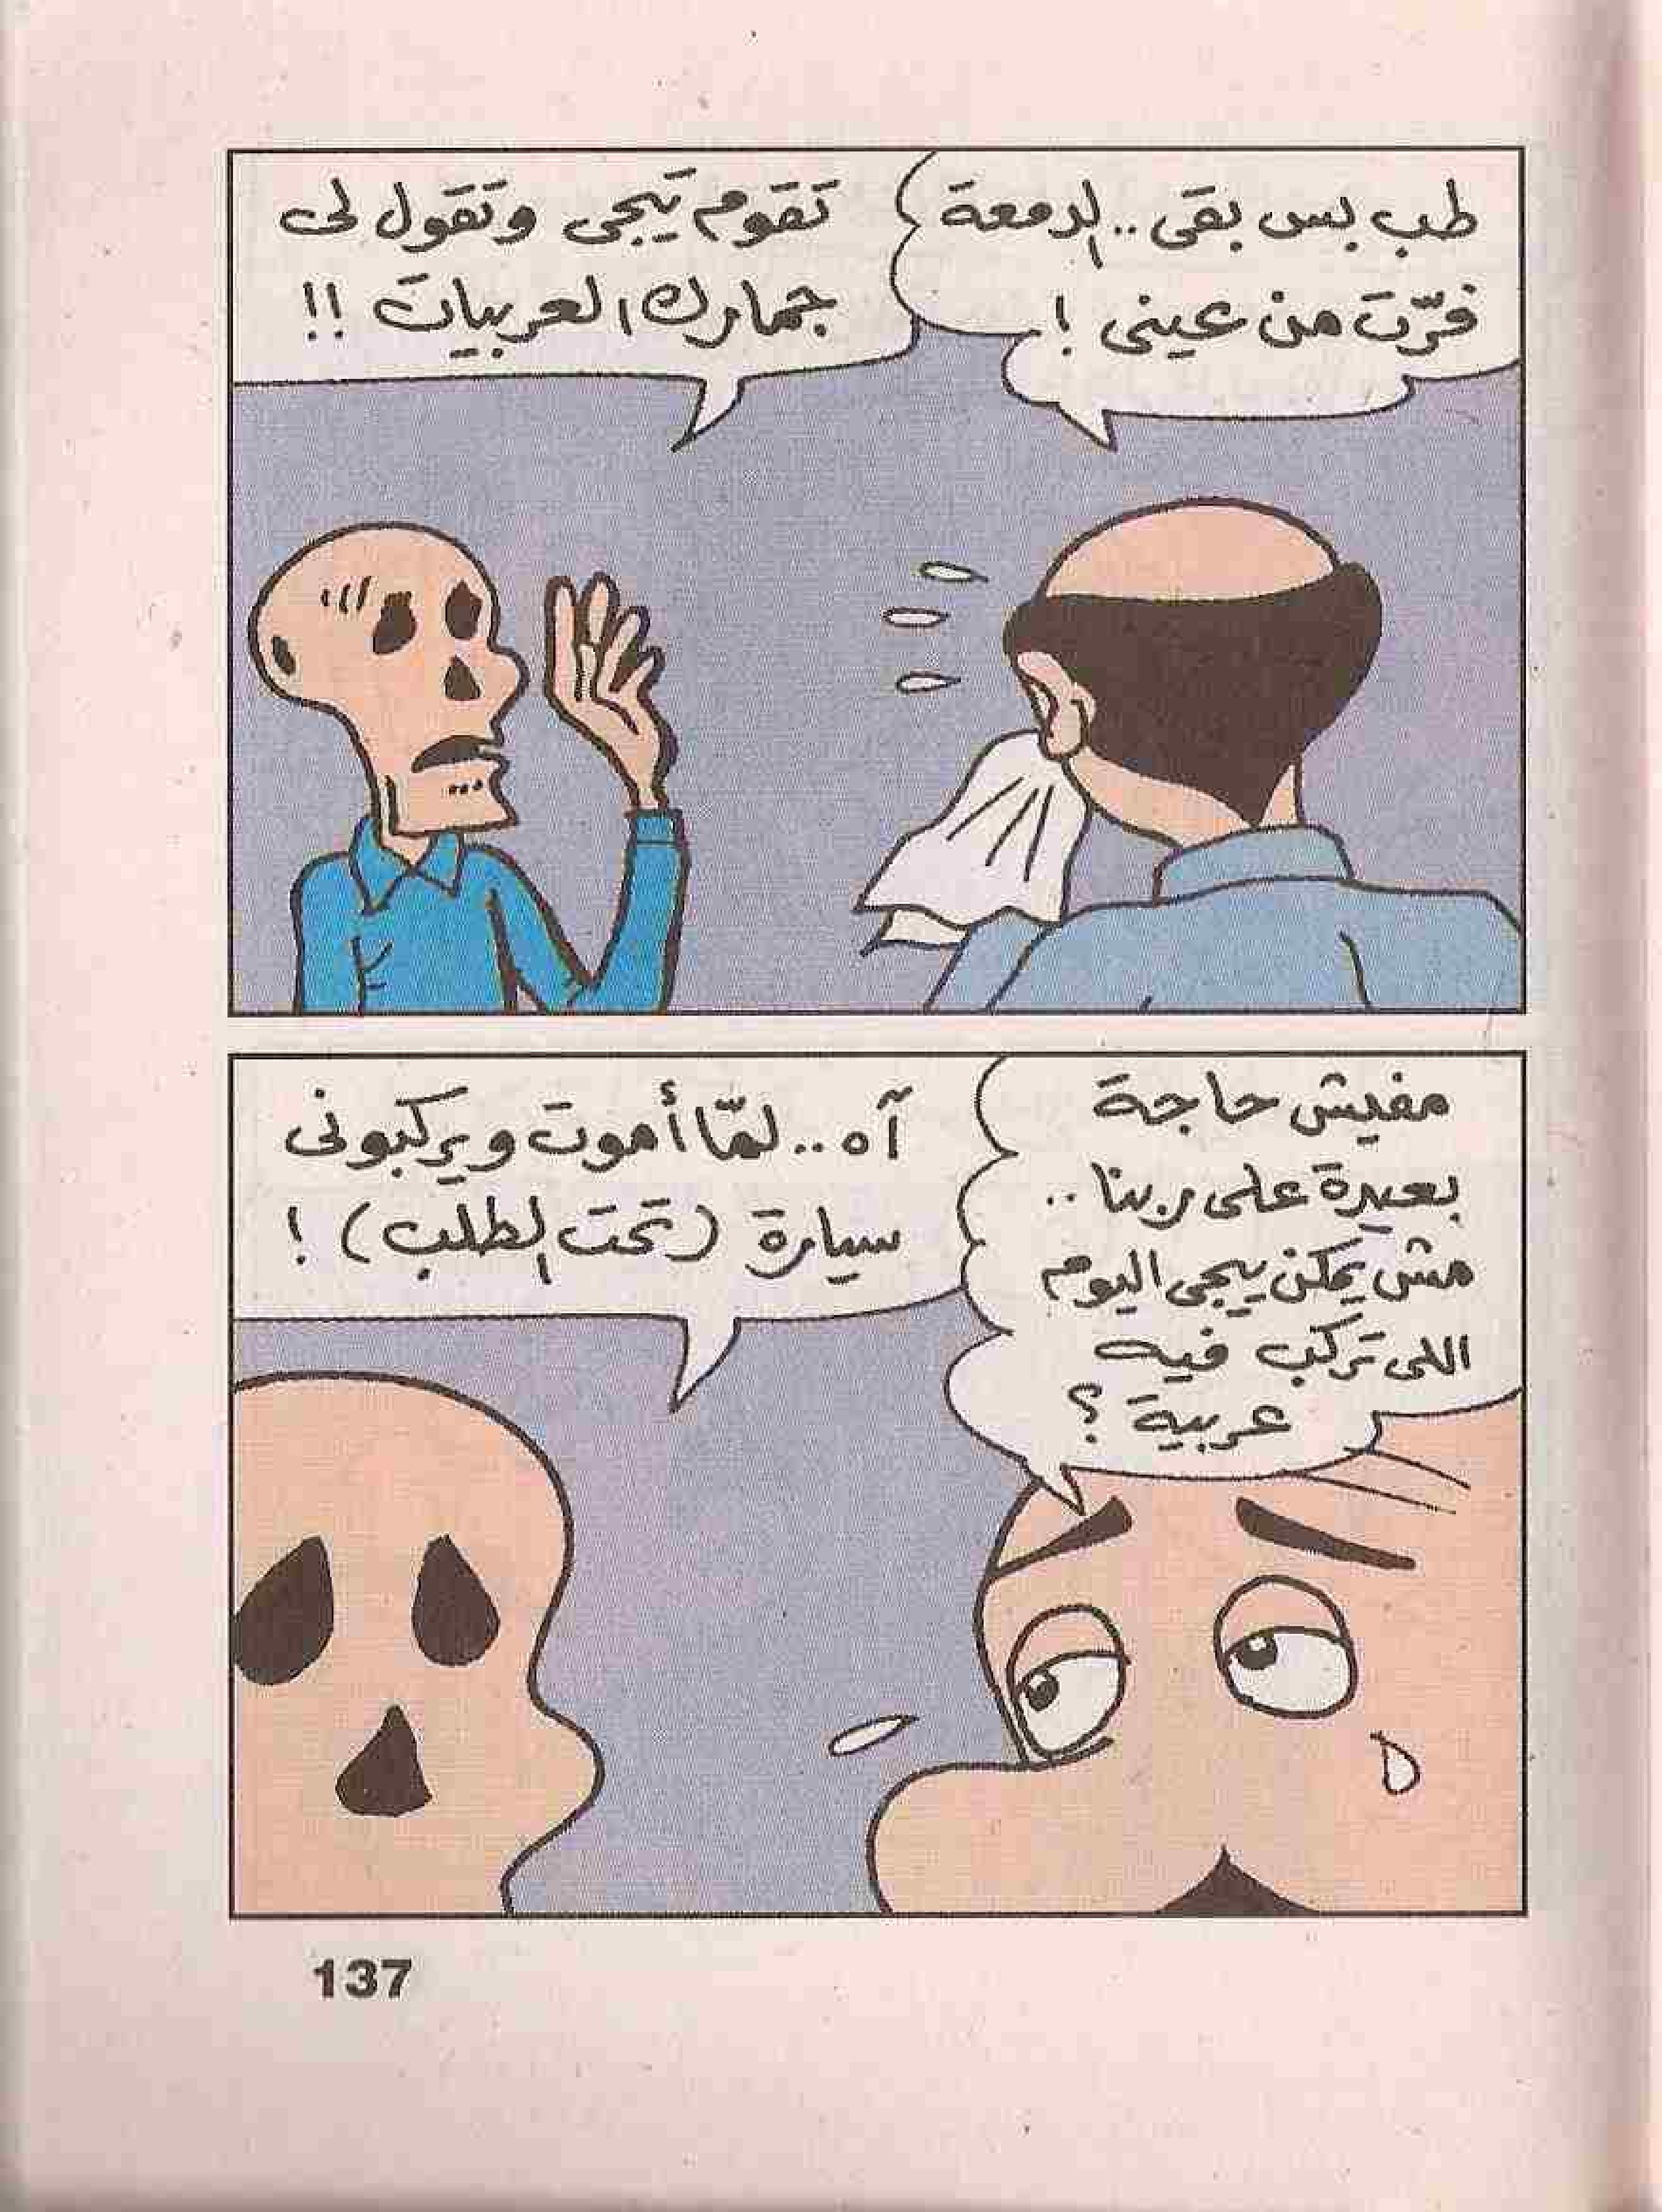 طب بس بقى.. الدمعة
فرّت من عينى !
تقوم تيجى وتقول لى
جمارك العربيات !!
مفيش حاجة
بعيدة على ربنا ..
مش يمكن ييجى اليوم
اللى تركب فيه
عربية ؟
آه .. لمّا أموت ويركبونى
سيارة (تحت الطلب) !
137